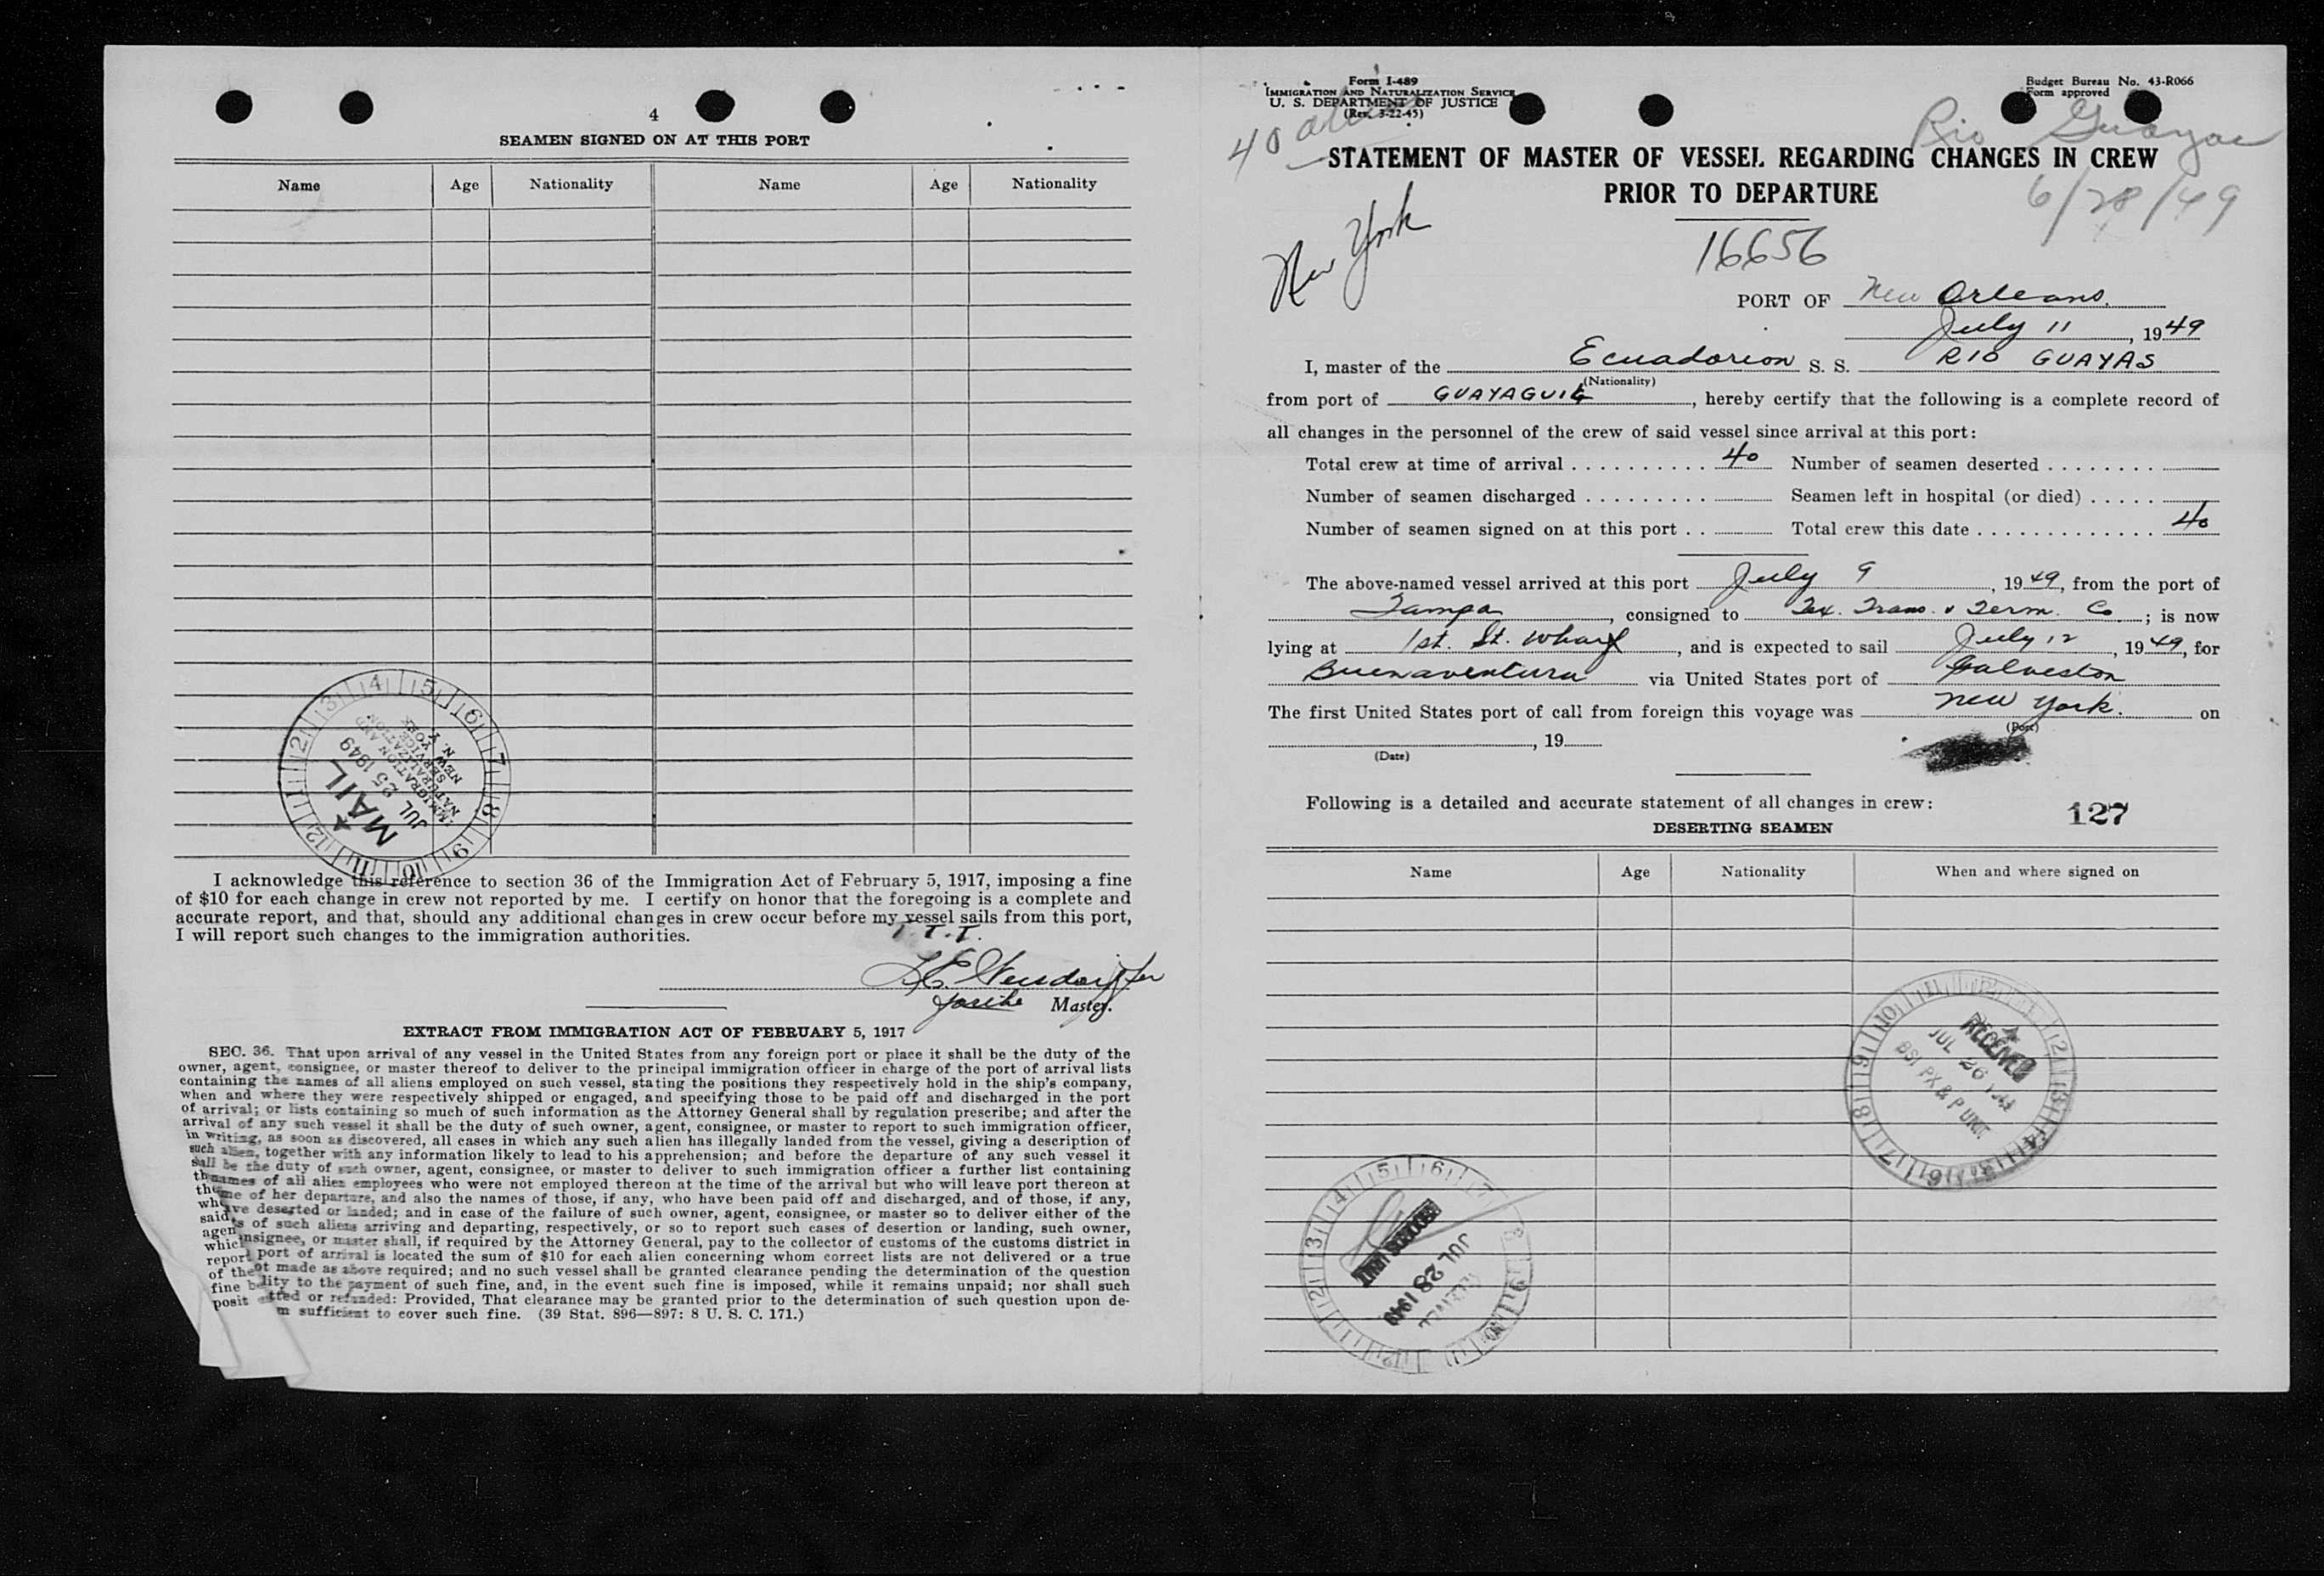 4
SEAMEN SIGNED ON AT THIS PORT
Name Age Nationality Name Age Nationality
MAIL
JUL 25 1949
IMMIGRATION AND
NATURALIZATION
SERVICE
NEW YORK, N. Y.
I acknowledge this reference to section 36 of the Immigration Act of February 5, 1917, imposing a fine
of $10 for each change in crew not reported by me. I certify on honor that the foregoing is a complete and
accurate report, and that, should any additional changes in crew occur before my vessel sails from this port,
I will report such changes to the immigration authorities.
T. T. T.
for the Master.
EXTRACT FROM IMMIGRATION ACT OF FEBRUARY 5, 1917
SEC. 36. That upon arrival of any vessel in the United States from any foreign port or place it shall be the duty of the
owner, agent, consignee, or master thereof to deliver to the principal immigration officer in charge of the port of arrival lists
containing the names of all aliens employed on such vessel, stating the positions they respectively hold in the ship's company,
when and where they were respectively shipped or engaged, and specifying those to be paid off and discharged in the port
of arrival; or lists containing so much of such information as the Attorney General shall by regulation prescribe; and after the
arrival of any such vessel it shall be the duty of such owner, agent, consignee, or master to report to such immigration officer,
in writing, as soon as discovered, all cases in which any such alien has illegally landed from the vessel, giving a description of
such alien, together with any information likely to lead to his apprehension; and before the departure of any such vessel it
shall be the duty of such owner, agent, consignee, or master to deliver to such immigration officer a further list containing
names of all alien employees who were not employed thereon at the time of the arrival but who will leave port thereon at
the me of her departure, and also the names of those, if any, who have been paid off and discharged, and of those, if any,
who ve deserted or landed; and in case of the failure of such owner, agent, consignee, or master so to deliver either of the
said s of such aliens arriving and departing, respectively, or so to report such cases of desertion or landing, such owner,
agen nsignee, or master shall, if required by the Attorney General, pay to the collector of customs of the customs district in
which port of arrival is located the sum of $10 for each alien concerning whom correct lists are not delivered or a true
report ot made as above required; and no such vessel shall be granted clearance pending the determination of the question
of the lity to the payment of such fine, and, in the event such fine is imposed, while it remains unpaid; nor shall such
fine b itted or refunded: Provided, That clearance may be granted prior to the determination of such question upon de-
posit m sufficient to cover such fine. (39 Stat. 896—897: 8 U. S. C. 171.)
Form I-489
IMMIGRATION AND NATURALIZATION SERVICE
U. S. DEPARTMENT OF JUSTICE
(Rev. 3-22-45)
Budget Bureau No. 43-R066
Form approved
40
Rio Guayas
6/28/49
STATEMENT OF MASTER OF VESSEL REGARDING CHANGES IN CREW
PRIOR TO DEPARTURE
New York
16656
PORT OF New Orleans.
July 11, 1949
I, master of the Ecuadorion S. S. RIO GUAYAS
(Nationality)
from port of GUAYAGUIL, hereby certify that the following is a complete record of
all changes in the personnel of the crew of said vessel since arrival at this port:
Total crew at time of arrival 40 Number of seamen deserted
Number of seamen discharged Seamen left in hospital (or died)
Number of seamen signed on at this port Total crew this date 40
The above-named vessel arrived at this port July 9, 1949, from the port of
Tampa, consigned to Tex. Trans. & Term. Co; is now
lying at 1st. St. Wharf, and is expected to sail July 12, 1949, for
Buenaventura via United States port of Galveston
The first United States port of call from foreign this voyage was New York. on
(Port)
, 19
(Date)
Following is a detailed and accurate statement of all changes in crew:
127
DESERTING SEAMEN
Name Age Nationality When and where signed on
RECEIVED
JUL 26
BSI PX & P UNIT
JUL 28 1949